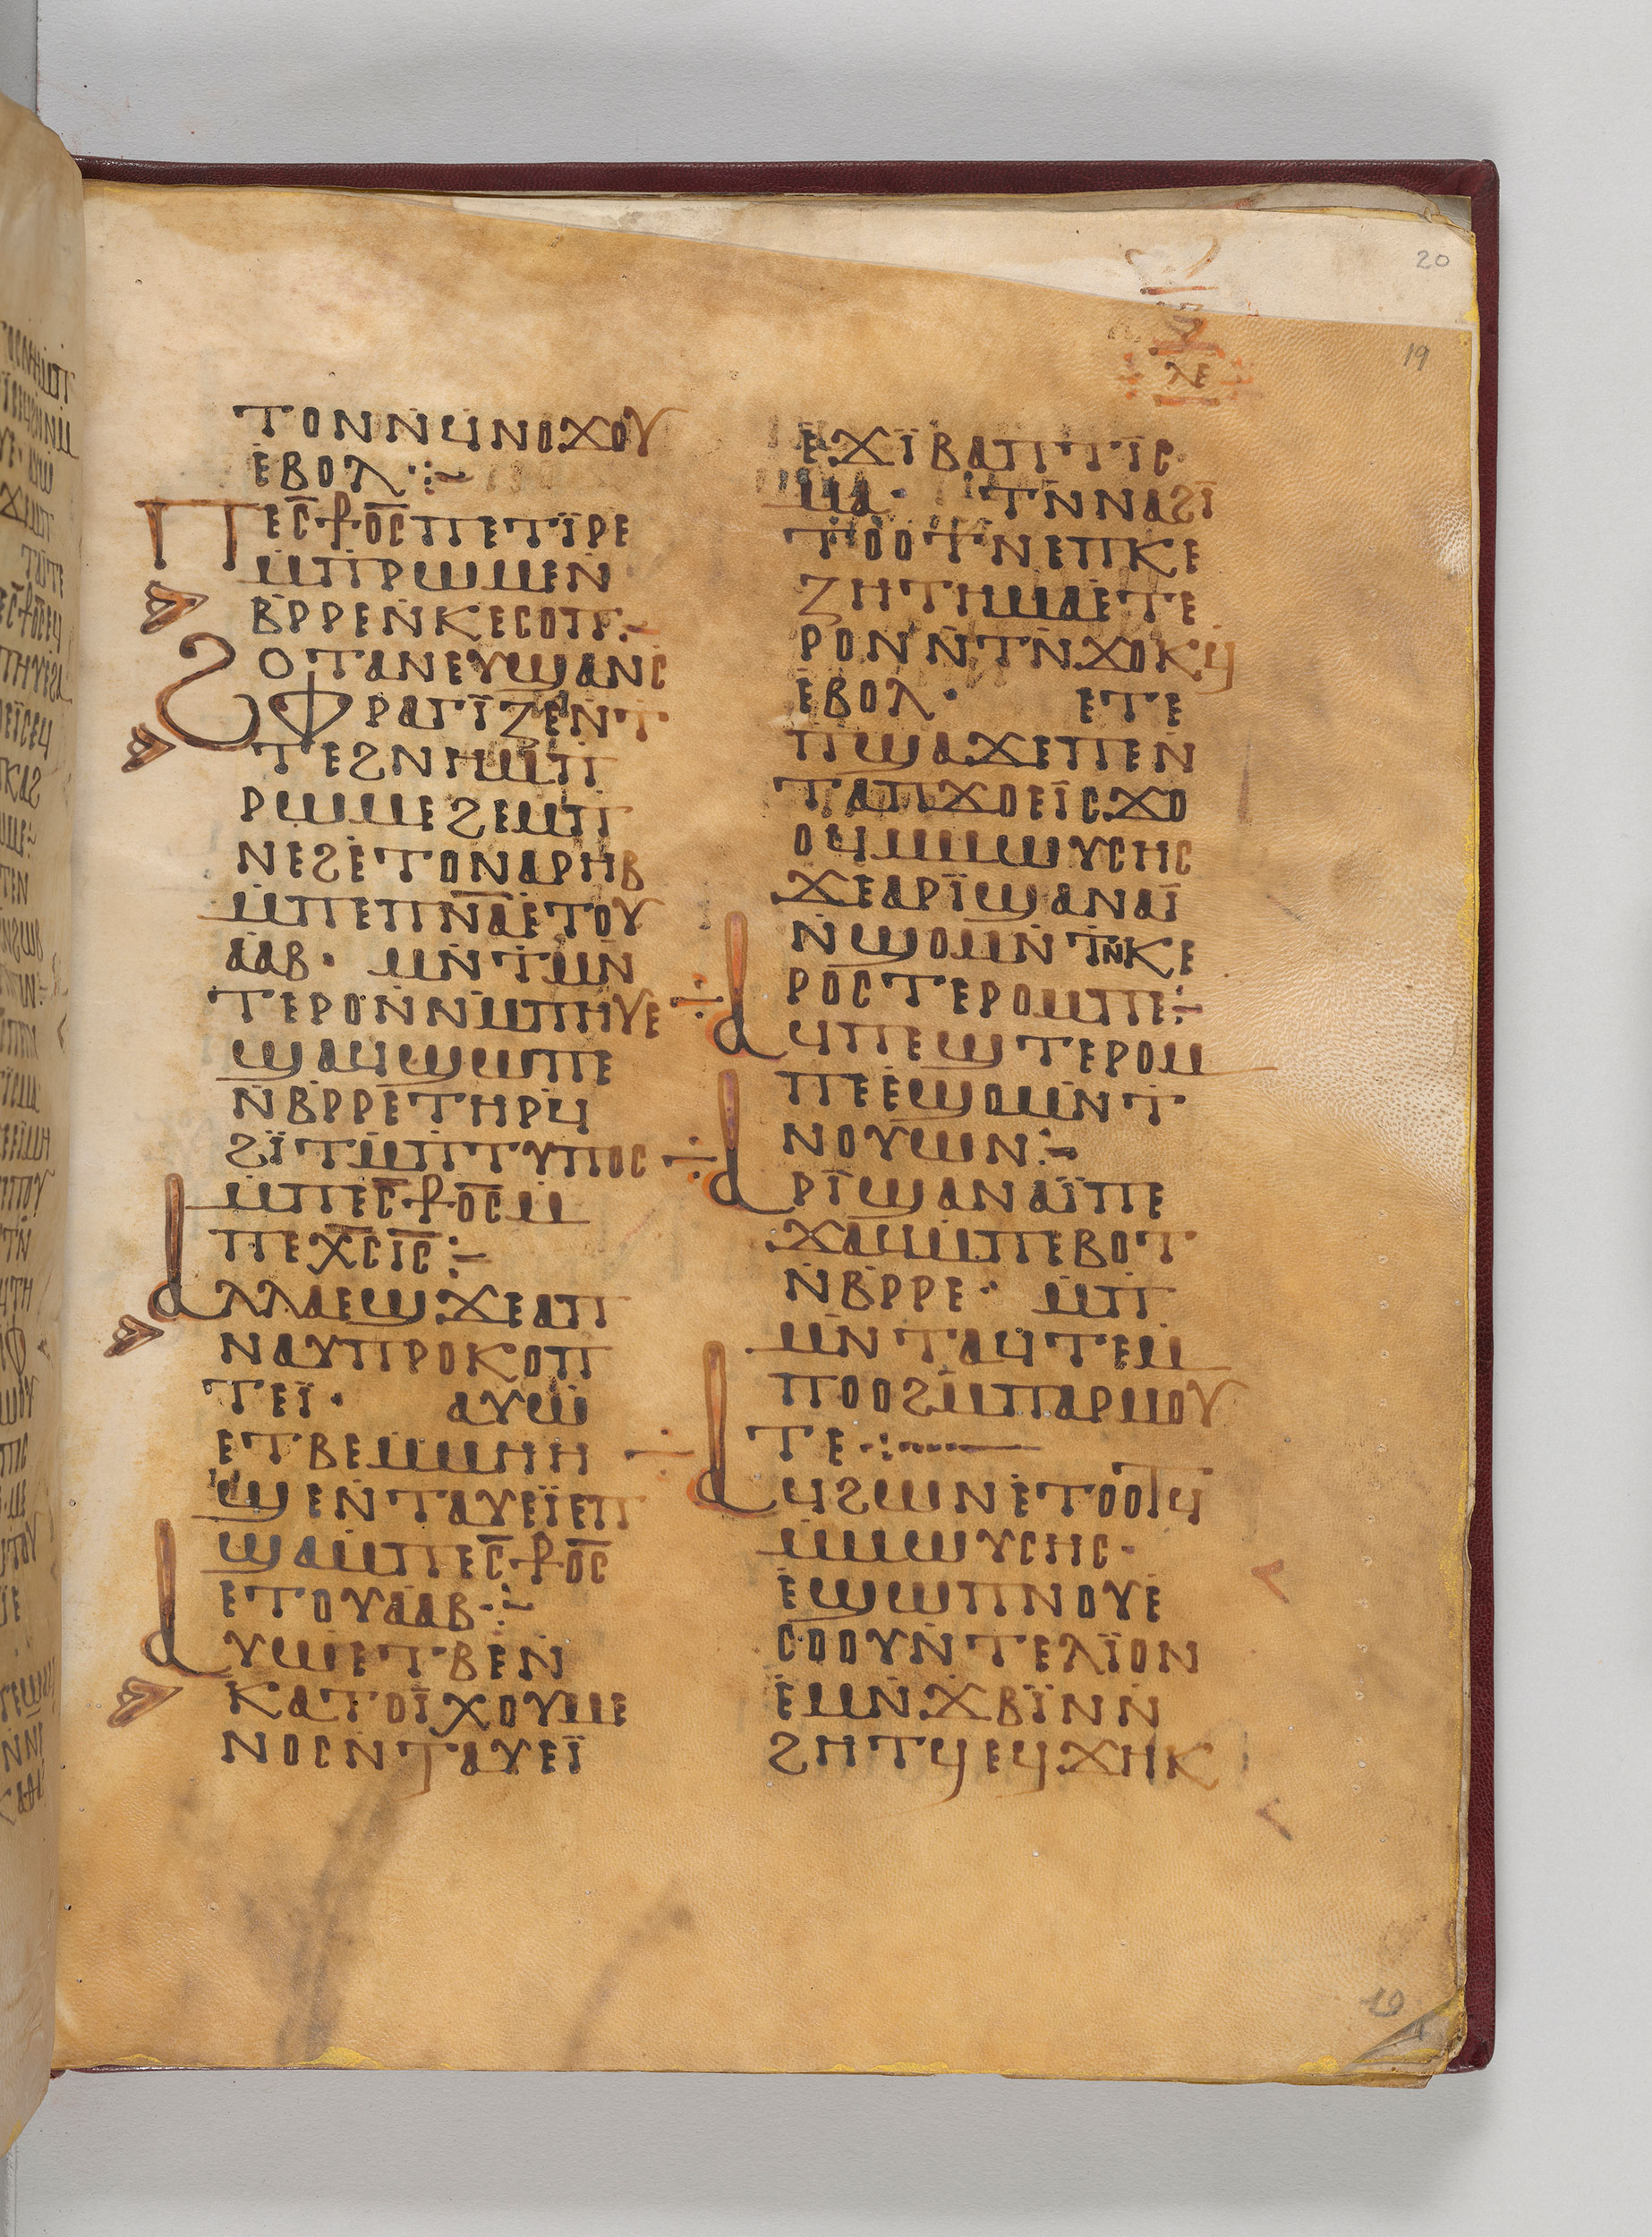 20
19
ⲗⲉ
ⲧⲟⲛⲛϥⲛⲟϫⲟⲩ
ⲉⲃⲟⲗ·:~
ⲡⲉⲥ̅⳨ⲟ̅ⲥ̅ⲡⲉⲧⲓ̈ⲣⲉ
ⲙ̇ⲡⲣⲱⲙⲉⲛ̇
ⲃ̇ⲣⲣⲉⲛ̇ⲕⲉⲥⲟⲡ:~
ϩⲟⲧⲁⲛⲉⲩϣⲁⲛⲥ̇
ⲫⲣⲁⲅⲓ̈ⲍⲉⲛ̇ⲧ
ⲧⲉϩⲛⲏⲙ̇ⲡ
ⲣⲱⲙⲉϩⲉⲙ̇ⲡ
ⲛⲉϩⲉⲧⲟⲛⲁⲣⲏⲃ
ⲙ̇ⲡⲉⲡⲛ̅ⲁ̅ⲉⲧⲟⲩ
ⲁⲁⲃ· ⲙⲛ̇ⲧⲙⲛ̇
ⲧⲉⲣⲟⲛ̇ⲛⲙ̇ⲡⲏⲩⲉ
ϣⲁϥϣⲱⲡⲉ
ⲛ̇ⲃ̇ⲣⲣⲉⲧⲏⲣϥ̇
ϩⲓ̈ⲧⲙ̇ⲡⲧⲩⲡⲟⲥ
ⲙ̇ⲡⲉⲥ̅⳨ⲟ̅ⲥ̅ⲙ̇
ⲡⲉⲭ̅ⲥ̅ⲓ̅ⲥ̅:~
ⲁⲗⲗⲁⲉϣϫⲉⲁⲡ
ⲛⲁⲩⲡⲣⲟⲕⲟⲡ
ⲧⲉⲓ̈· ⲁⲩⲱ̇
ⲉⲧⲃⲉⲙⲙⲏⲏ
ϣⲉⲛ̇ⲧⲁⲩⲉⲓ̈ⲉⲡ
ϣⲁⲙ̇ⲡⲉⲥ̅⳨ⲟ̅ⲥ̅
ⲉⲧⲟⲩⲁⲁⲃ·:~
ⲁⲩⲱ̇ⲉⲧⲃⲉⲛ̇
ⲕⲁⲧⲟⲓ̈ⲭⲟⲩⲙⲉ
ⲛⲟⲥⲛ̇ⲧⲁⲩⲉⲓ̈
ⲉϫⲓ̈ⲃⲁⲡⲧⲓ̈ⲥ
ⲙⲁ· ⲧⲛ̇ⲛⲁϩⲓ̈
ⲧⲟⲟⲧⲛ̇ⲉⲡⲕⲉ
ⲍⲏⲧⲏⲙⲁⲉⲧⲉ
ⲣⲟⲛⲛ̇ⲧⲛ̇ϫⲟⲕϥ̇
ⲉⲃⲟⲗ· ⲉⲧⲉ
ⲡϣⲁϫⲉⲡⲉⲛ̇
ⲧⲁⲡϫⲟⲉⲓ̈ⲥϫⲟ
ⲟϥⲙ̇ⲙⲱⲩⲥⲏⲥ
ϫⲉⲁⲣⲓ̈ϣⲁⲛⲁⲓ̈
ⲛ̇ϣⲟⲙⲛ̇ⲧⲛ̇ⲕⲉ
ⲣⲟⲥⲧⲉⲣⲟⲙⲡⲉ:~
ⲁϥⲡⲉϣⲧⲉⲣⲟⲙ
ⲡⲉⲉϣⲟⲙⲛ̇ⲧ
ⲛⲟⲩⲱⲛ:~
ⲁⲣⲓ̈ϣⲁⲛⲁⲓ̈ⲡⲉ
ϫⲁϥⲙ̇ⲡⲉⲃⲟⲧ
ⲛ̇ⲃ̇ⲣⲣⲉ· ⲙ̇ⲡ
ⲙⲛ̇ⲧⲁϥⲧⲉⲙ̇
ⲡⲟⲟϩⲙ̇ⲡⲁⲣⲙⲟⲩ
ⲧⲉ·:~
ⲁϥϩⲱⲛⲉⲧⲟⲟⲧϥ
ⲙ̇ⲙⲱⲩⲥⲏⲥ·
ⲉϣⲱⲡⲛⲟⲩⲉ
ⲥⲟⲟⲩⲛ̇ⲧⲉⲗⲓ̈ⲟⲛ
ⲉⲙⲛ̇ϫⲃⲓ̈ⲛⲛ̇
ϩⲏⲧϥⲉϥϫⲏⲕ
19